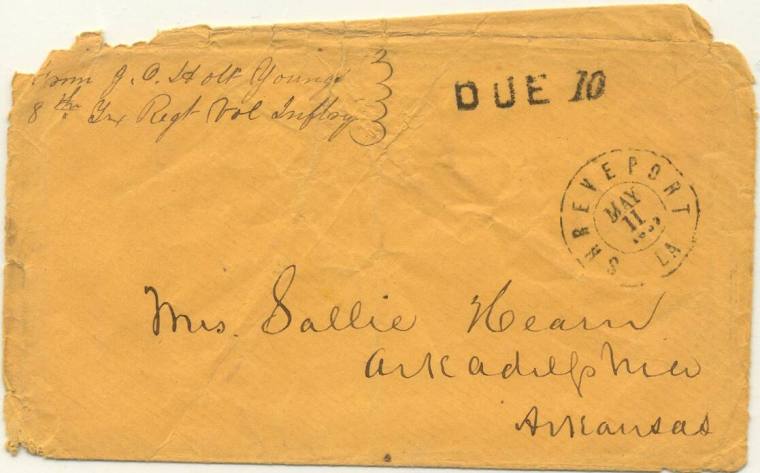 From J. O. Holt Young
8th Tex Regt Vol Inftry
DUE 10
SHREVEPORT LA
MAY
11
Mrs. Sallie Hearn
Arkadelphia
Arkansas